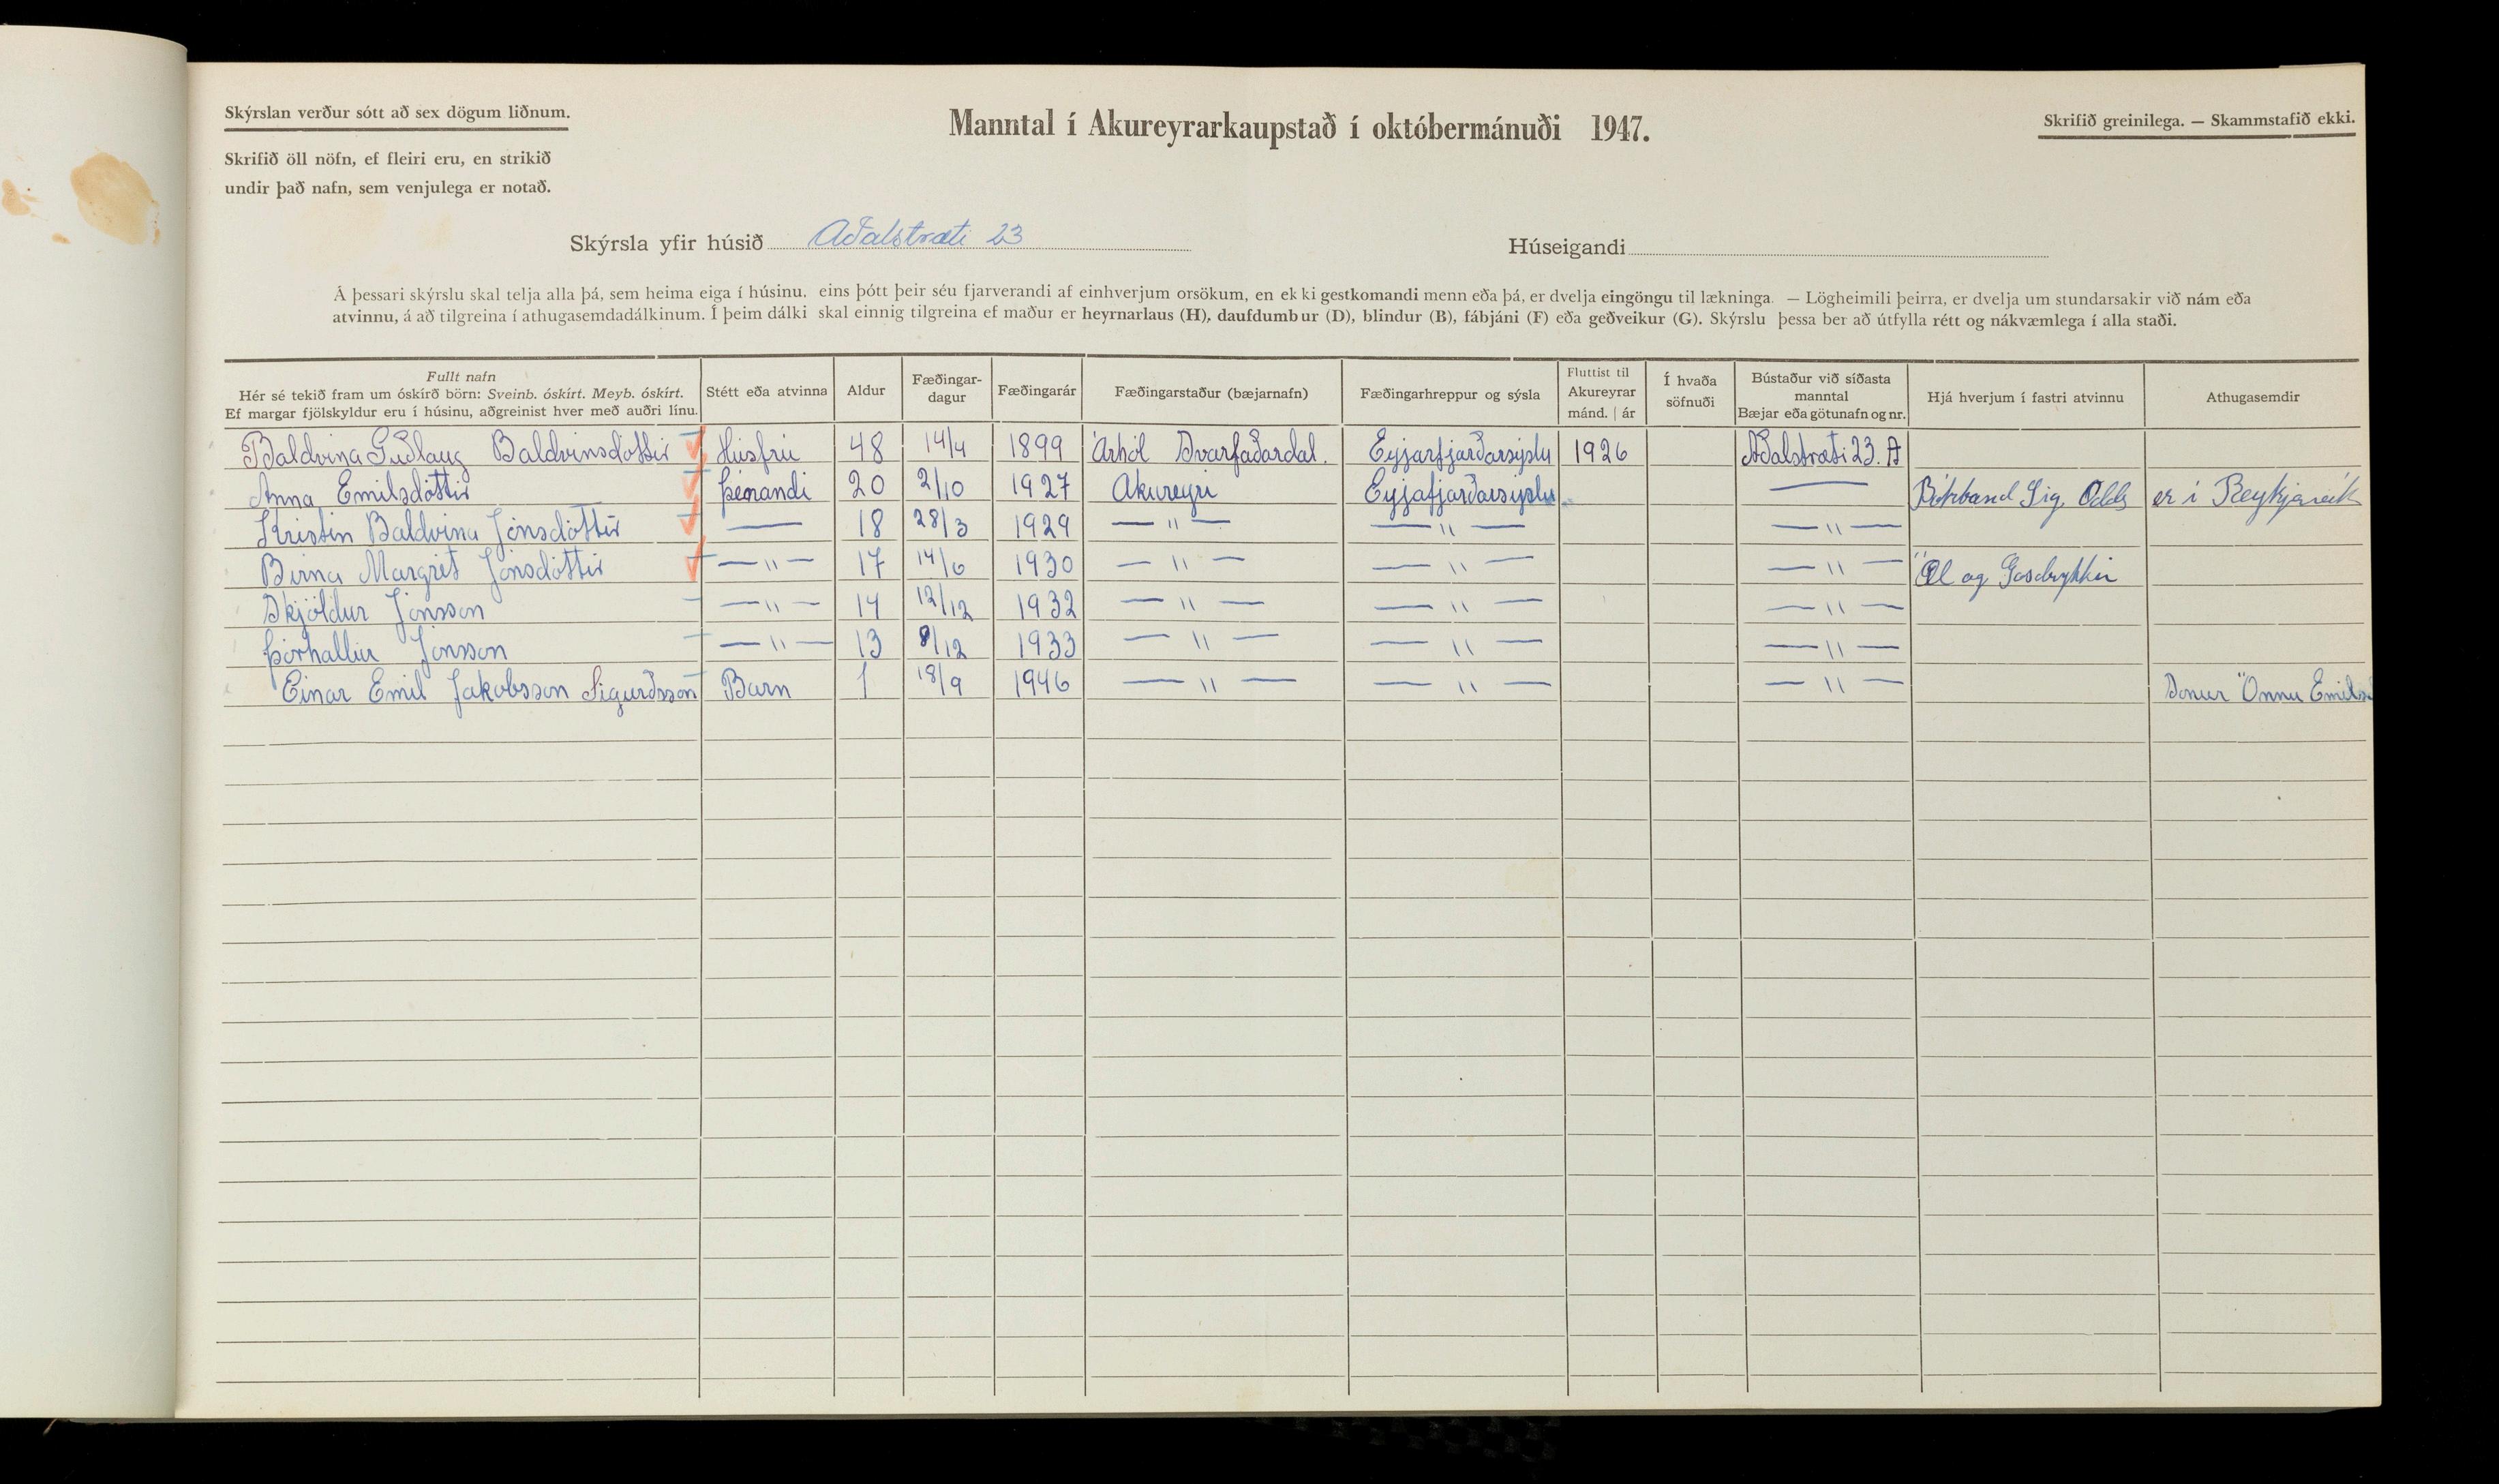 Skýrslan verður sótt að sex dögum liðnum.
Skrifið öll nöfn, ef fleiri eru, en strikið
undir það nafn, sem venjulega er notað.
Manntal í Akureyrarkaupstað í októbermánuði 1947.
Skrifið greinilega. — Skammstafið ekki.
Skýrsla yfir húsið Aðalstræti 23
Húseigandi
Á þessari skýrslu skal telja alla þá, sem heima eiga í húsinu, eins þótt þeir séu fjarverandi af einhverjum orsökum, en ekki gestkomandi menn eða þá, er dvelja eingöngu til lækninga. — Lögheimili þeirra, er dvelja um stundarsakir við nám eða
atvinnu, á að tilgreina í athugasemdadálkinum. Í þeim dálki skal einnig tilgreina ef maður er heyrnarlaus (H), daufdumbur (D), blindur (B), fábjáni (F) eða geðveikur (G). Skýrslu þessa ber að útfylla rétt og nákvæmlega í alla staði.
Fullt nafn
Hér sé tekið fram um óskírð börn: Sveinb. óskírt. Meyb. óskírt.
Ef margar fjölskyldur eru í húsinu, aðgreinist hver með auðri línu.
Stétt eða atvinna
Aldur
Fæðingar-
dagur
Fæðingarár
Fæðingarstaður (bæjarnafn)
Fæðingarhreppur og sýsla
Fluttist til
Akureyrar
mánd. | ár
Í hvaða
söfnuði
Bústaður við síðasta
manntal
Bæjar eða götunafn og nr.
Hjá hverjum í fastri atvinnu
Athugasemdir
Baldvina Guðlaug Baldvinsdóttir Húsfrú 48 14/4 1899 Árhól Svarfaðardal. Eyjarfjarðarsýslu 1926 Aðalstræti 23. A
Anna Emilsdóttir þénandi 20 2/10 1927 Akureyri Eyjafjarðarsýslu — Bókband Sig. Odds er í Reykjavík
Kristín Baldvina Jónsdóttir — 18 28/3 1929 — " — — " — — " —
Birna Margrét Jónsdóttir — " — 17 14/6 1930 — " — — " — — " — Öl og Gosdrykkir
Skjöldur Jónsson — " — 14 12/12 1932 — " — — " — — " —
Þórhallur Jónsson — " — 13 8/12 1933 — " — — " — — " —
Einar Emil Jakobsson Sigurðsson Barn 1 18/9 1946 — " — — " — — " — Sonur Önnu Emilsd